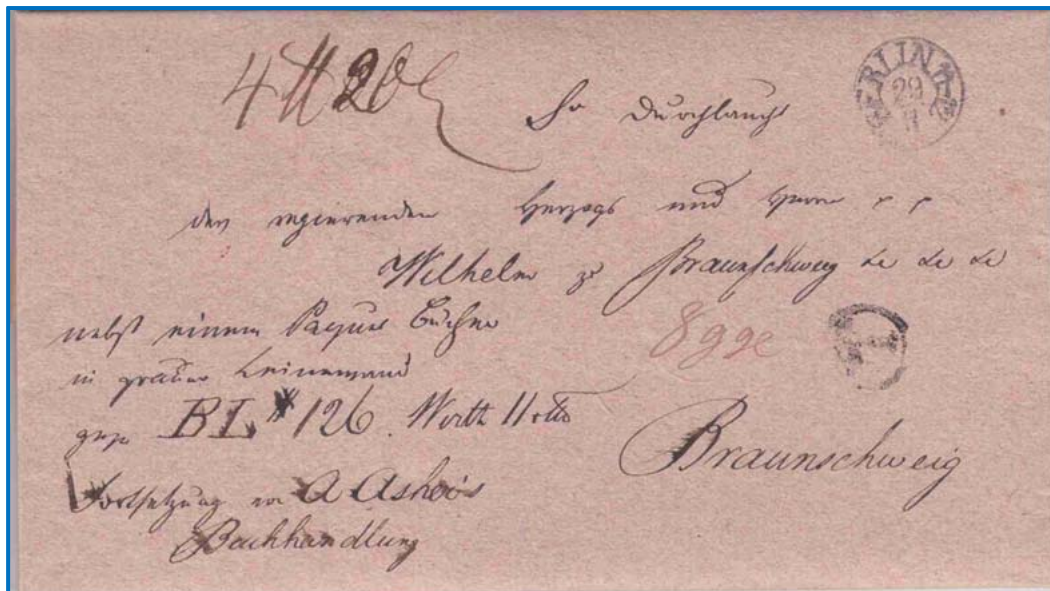 4 # 20
BERLIN
29
11
Sr Durchlaucht
des regierenden Herzogs und Herrn p p
Wilhelm zu Braunschweig &c &c &c
nebst einem Paquet Bücher
in grauer Leinewand
8 gge
gez. BL # 126. Werth 11 rtl
Braunschweig
Fortsetzung von A Asher's
Buchhandlung